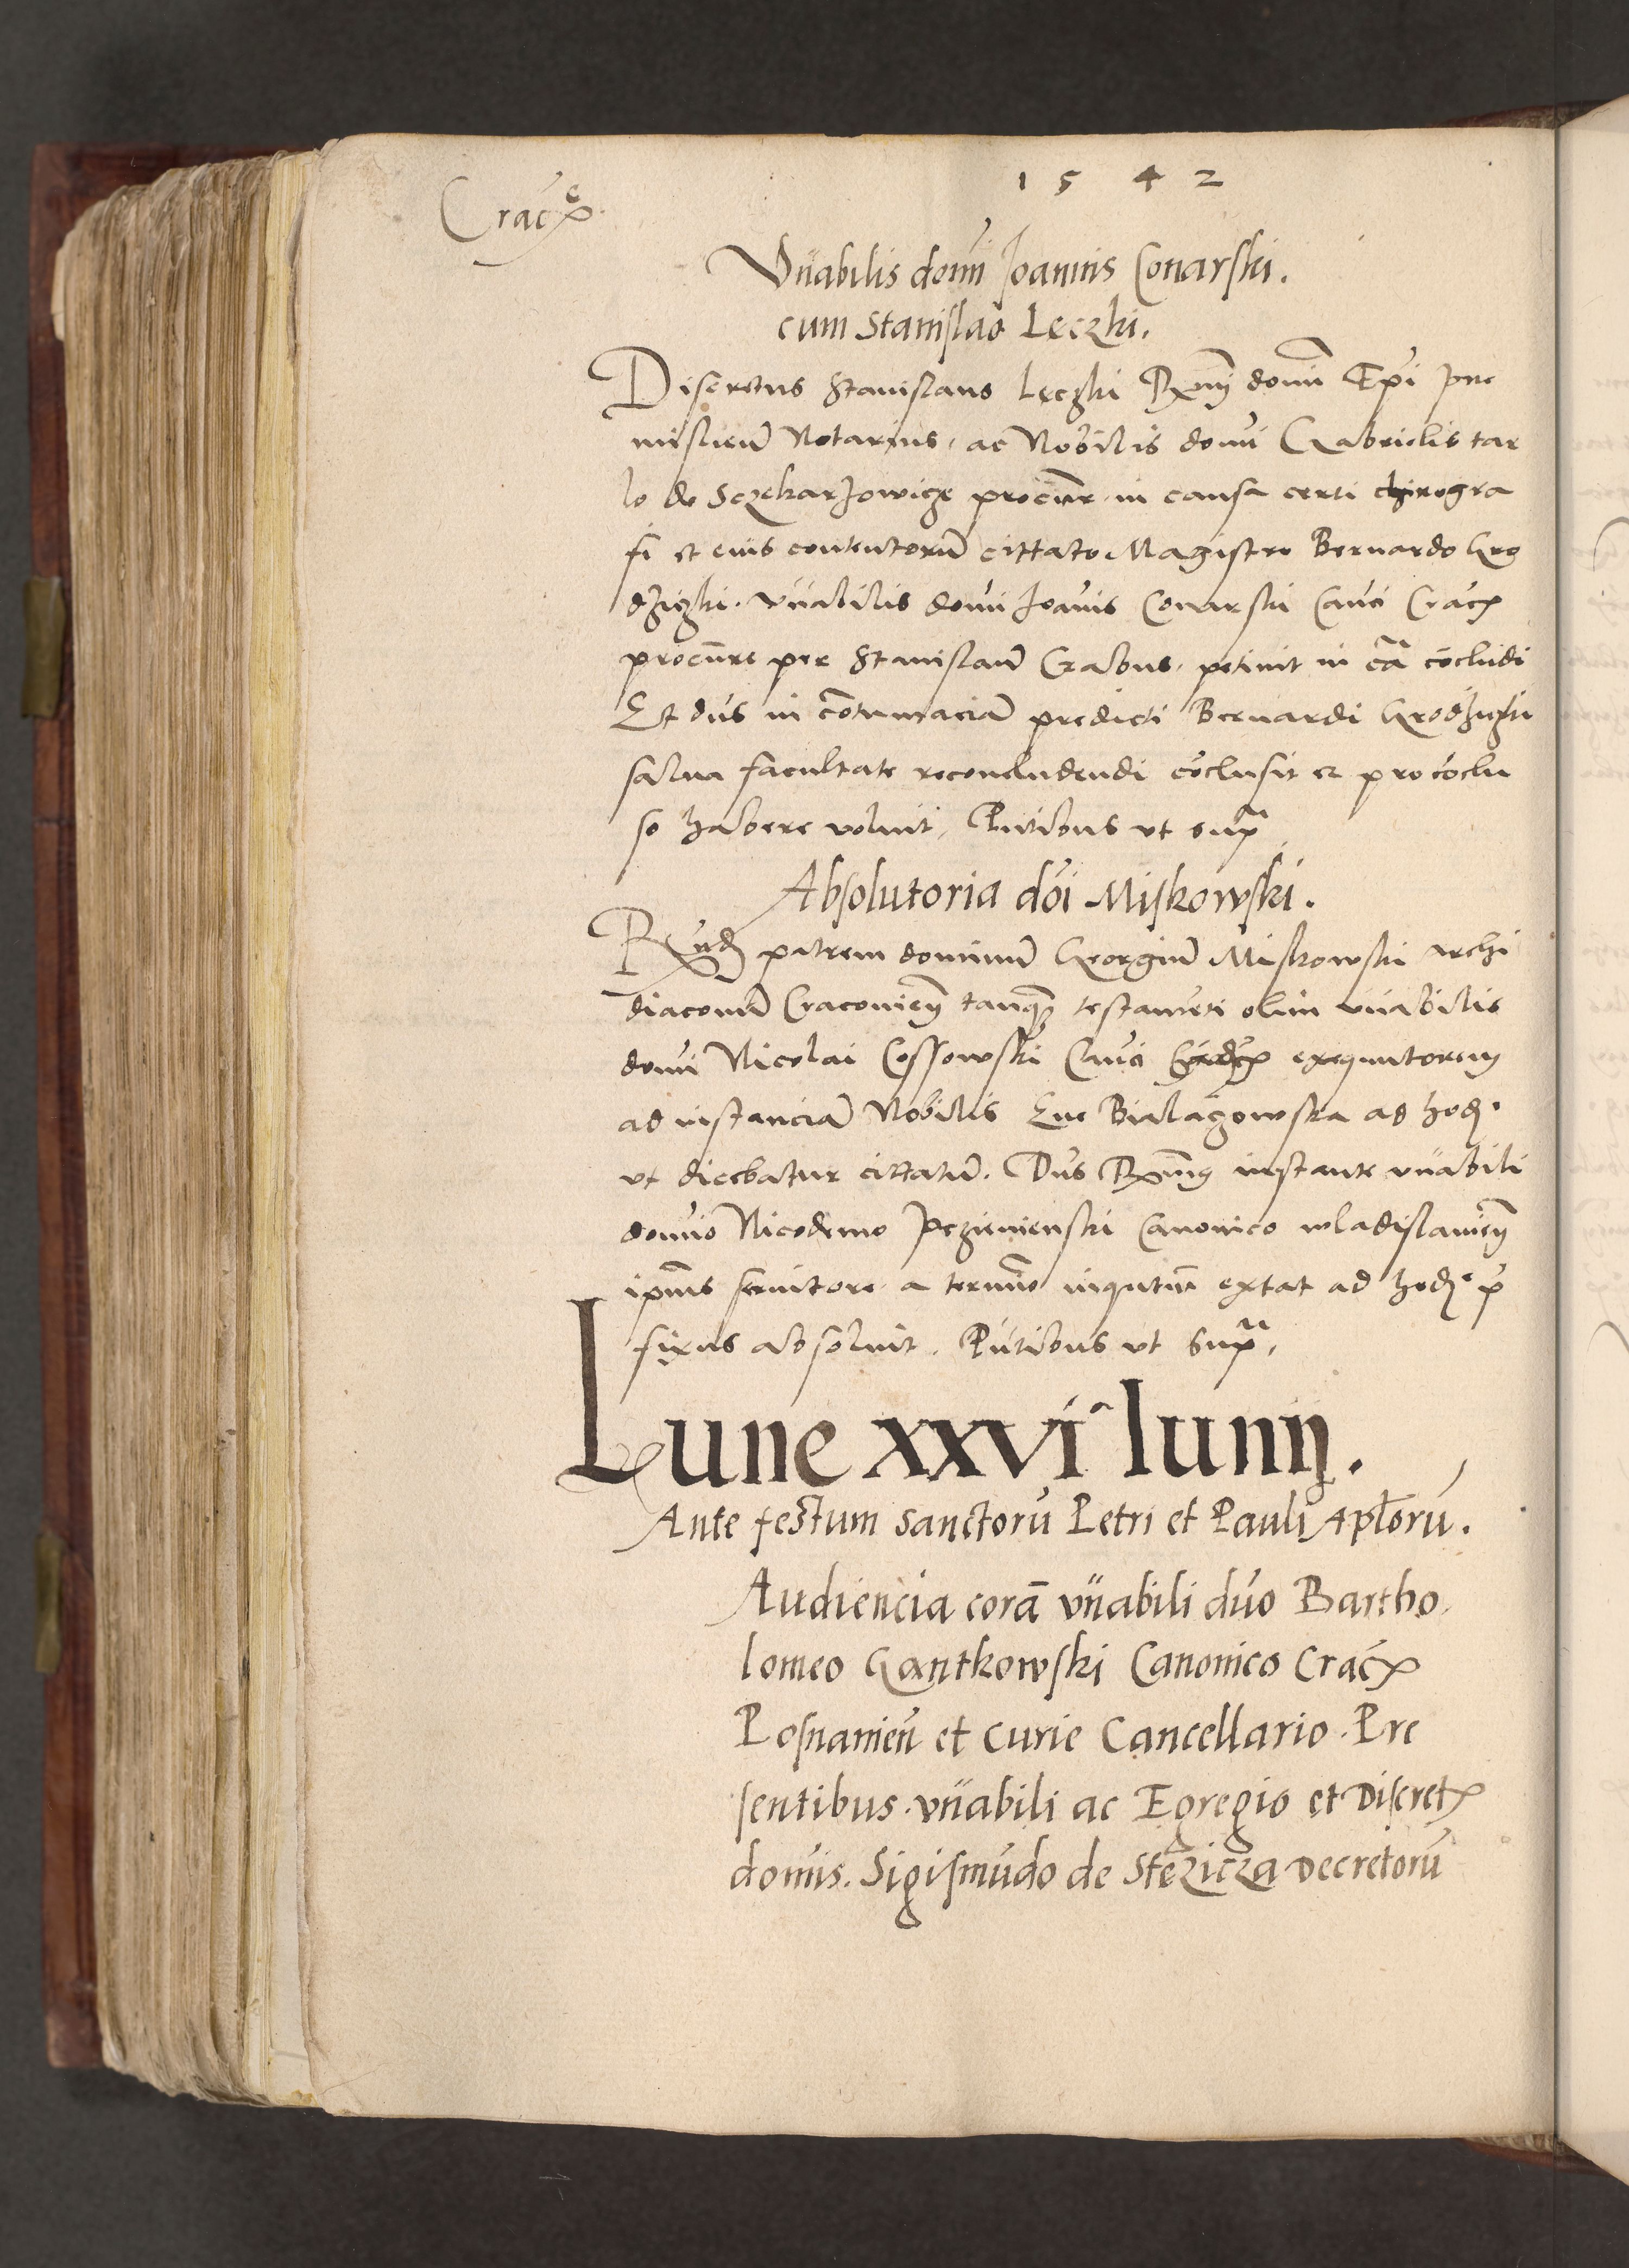 1542
Cracẽ
Vnabilis domi Joannis Conarski.
cum Stanislao Lęczki.
Discretus Stanislaus Lęczki Rxmi domi Epi pre
misliens Notarius, ac Nobilis domi Gabrielis tar
lo de Sczekarzowicze procur in causa certi chirogra
fi et eius contentorũ cittato Magistro Bernardo Gro
dziczki. vnabilis domi Joanis Conarski Cauci Crac
procure per Stanislaũ Grabus, petiuit in cã cõcludi
Et dns in cõtumaciã predicti Bernardi Grodziczki
salua facultate reconcludendi cõclusit et pro cõclu
so habere voluit, Pñtibus vt supra
Absolutoria dõi Miskowski.
Rxnd patrem dominũ Georgiũ Miskowski archi
diaconũ Cracouień tanq testamẽti olim vnabilis
domi Nicolai Cossowski Cauci Crac exequutorem
ad instanciã Nobilis Eue Bialaczowska ad hod.
vt dicebatur cittatũ. Dns Rxmus instante vnabili
domio Nicodemo Jezimienski Canonico wladislauień
ipius seruitore a termino inqutum extat ad hod. p
fixus absoluit. Pñtibus vt supra,
Lune xxvia Iunij.
Ante festum sanctorũ Petri et Pauli Aplorũ.
Audiencia corã vnabili dno Bartho
lomeo Gantkowski Canonico Crac
Posnanień et curie Cancellario. Pre
sentibus. vnabili ac Egregio et Discret
domis. Sigismũdo de Stezicza Decretorũ